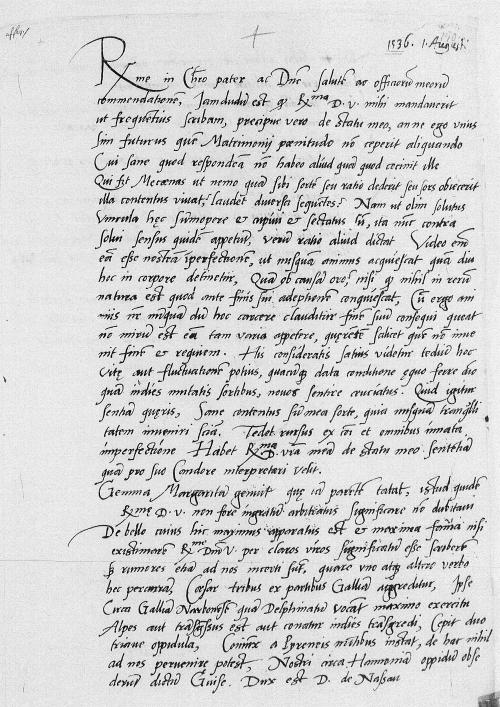 1536. 1. Augusti
Rme in Chro pater ac Dne salutē ac officiorū meorū
commendationē, Iamdudū est q̄ Rma D. v. mihi mandaverit
ut frequentius scribam, precipue vero de statu meo, an ne ego unus
sim futurus quē Matrimonij pœnitudo nō ceperit aliquando
Cui sane quod respondeā nō habeo aliud quā quod cecinit ille
Qui fit Mecœnas ut nemo quā sibi sortē seu ratio dederit seu sors obiecerit
illa contentus vivat, laudet diversa sequētes? Nam ut olim solutus
vincula hęc sūmopere & cupivi & sectatus sū, ita nūc contra
solvi sensus quidē appetit, verū ratio aliud dictat Video enī
eā esse nostrā iperfectionē, ut nusquā animus acquiescat quā diu
hoc in corpore detinetur, Quā ob causā oro? nisi q̄ nihil in rerū
natura est quod ante finis sui adeptionē conquiescat, Cū ergo ani
mus nr̄ nūquā dū hoc carcere clauditur finē suū consequi queat
nō mirū est eū tam varia appetere, quęrere scilicet quē nō inve
nit finē & requiem. His consideratis satius videtur tediū hoc
vitę aut fluctuationē potius, quacūq̄ data conditione ęquo ferre die
quā indies mutatis sortibus, novos sentire cruciatus. Quid igitur
sentiā quęris, Sane contentus sū mea sorte, quia nusquā tranquilli
tatem inveniri sciā. Tedet rursus ex eoī et omnibus innata
imperfectione Habet Rma D. vra meā de statu meo sentētiā
quā pro suo Candore interpretari velit.
Gemma Margaritā genuit quę iā parētē tatat, istud quidē
Rmę D. v. non fore ingratū arbitratus significare nō dubitavi
De bello cuius hic maximus apparatus est & maxima fama nisi
existimarē Rme Dm V. per claros viros significatū esse scriberē
q̄ rumores etiā ad nos incerti sūt, quare uno atq̄ altero verbo
hec percurrā, Cæsar tribus ex partibus Galliā aggreditur, Ipse
Circa Galliā Narbonēsē quā Delphinatū vocāt maximo exercitu
Alpes aut trāsgressus est aut conatur indies trāsgredi, Cepit duo
triave oppidula, a Pyreneis mōtibus instat, de hac nihil
ad nos pervenire potest, Nostri circa Hannoniā oppidū obse
derūt dictū Guise. Dux est D. de Nassau